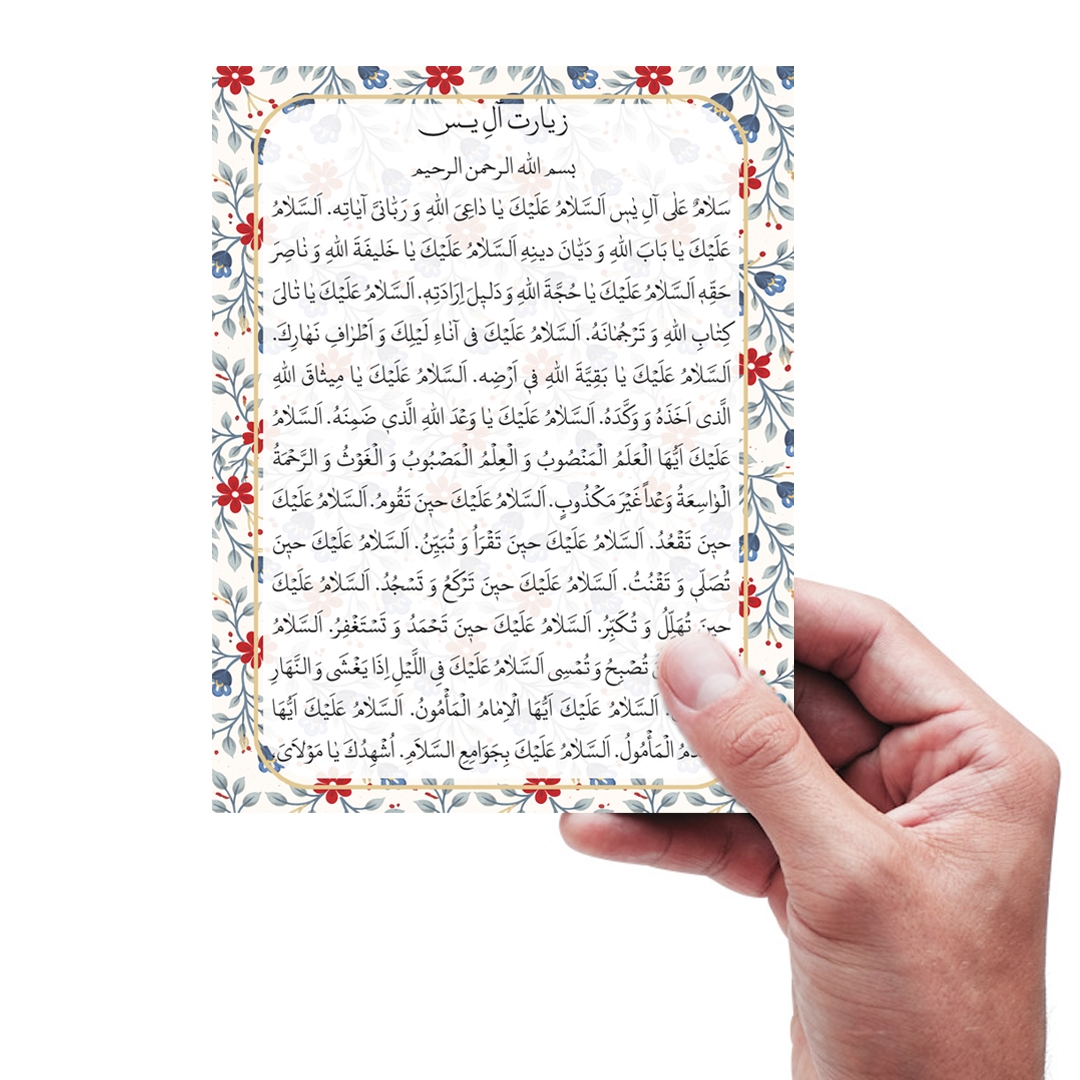 زیارت آلِ یـس
بسم الله الرحمن الرحیم
سَلامٌ عَلٰی آلِ یٰس اَلسَّلامُ عَلَیْكَ یٰا دٰاعِیَ اللهِ وَ رَبّٰانیَّ آیٰاتِه. اَلسَّلامُ
عَلَیْكَ یٰا بٰابَ اللهِ وَ دَیّٰانَ دینِهِ اَلسَّلامُ عَلَیْكَ یٰا خَلیفَةَ اللهِ وَ نٰاصِرَ
حَقِّهِ اَلسَّلامُ عَلَیْكَ یٰا حُجَّةَ اللهِ وَ دَلیلَ اِرٰادَتِهِ. اَلسَّلامُ عَلَیْكَ یٰا تٰالیَ
کِتٰابِ اللهِ وَ تَرْجُمٰانَهُ. اَلسَّلامُ عَلَیْكَ فی آنٰاءِ لَیْلِكَ وَ اَطْرٰافِ نَهٰارِكَ.
اَلسَّلامُ عَلَیْكَ یٰا بَقِیَّةَ اللهِ فی اَرْضِه. اَلسَّلامُ عَلَیْكَ یٰا میثٰاقَ اللهِ
الَّذی اَخَذَهُ وَ وَکَّدَهُ. اَلسَّلامُ عَلَیْكَ یٰا وَعْدَ اللهِ الَّذی ضَمِنَهُ. اَلسَّلامُ
عَلَیْكَ اَیُّهَا الْعَلَمُ الْمَنْصُوبُ وَ الْعِلْمُ الْمَصْبُوبُ وَ الْغَوْثُ وَ الرَّحْمَةُ
الْوٰاسِعَةُ وَعْداً غَیْرَ مَکْذُوبٍ. اَلسَّلامُ عَلَیْكَ حینَ تَقُومُ. اَلسَّلامُ عَلَیْكَ
حینَ تَقْعُدُ. اَلسَّلامُ عَلَیْكَ حینَ تَقْرَاُ وَ تُبَیِّنُ. اَلسَّلامُ عَلَیْكَ حینَ
تُصَلّی وَ تَقْنُتُ. اَلسَّلامُ عَلَیْكَ حینَ تَرْکَعُ وَ تَسْجُدُ. اَلسَّلامُ عَلَیْكَ
حینَ تُهَلِّلُ وَ تُکَبِّرُ. اَلسَّلامُ عَلَیْكَ حینَ تَحْمَدُ وَ تَسْتَغْفِرُ. اَلسَّلامُ
تُصْبِحُ وَ تُمْسِی اَلسَّلامُ عَلَیْكَ فِی اللَّیْلِ اِذَا یَغْشَی وَ النَّهَارِ
اَلسَّلامُ عَلَیْكَ اَیُّهَا الْاِمٰامُ الْمَأْمُونُ. اَلسَّلامُ عَلَیْكَ اَیُّهَا
الْمَأْمُولُ. اَلسَّلامُ عَلَیْكَ بِجَوٰامِعِ السَّلاٰمِ. اُشْهِدُكَ یٰا مَوْلاٰیَ.